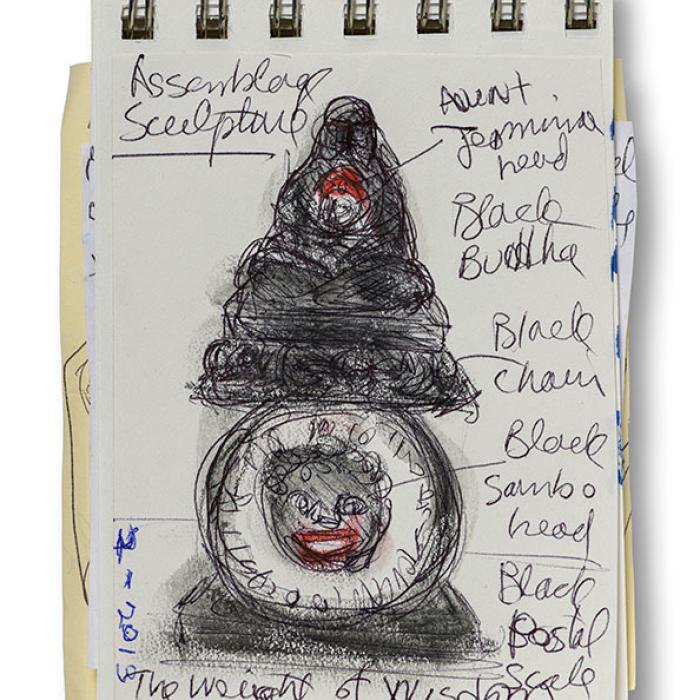 Assemblag
Sculpture
Aunt
Jemmina
head
Black
Buddha
Black
Chain
Black
Sambo
head
Black
Postal
Scale
2019
The Weight of Wisdom